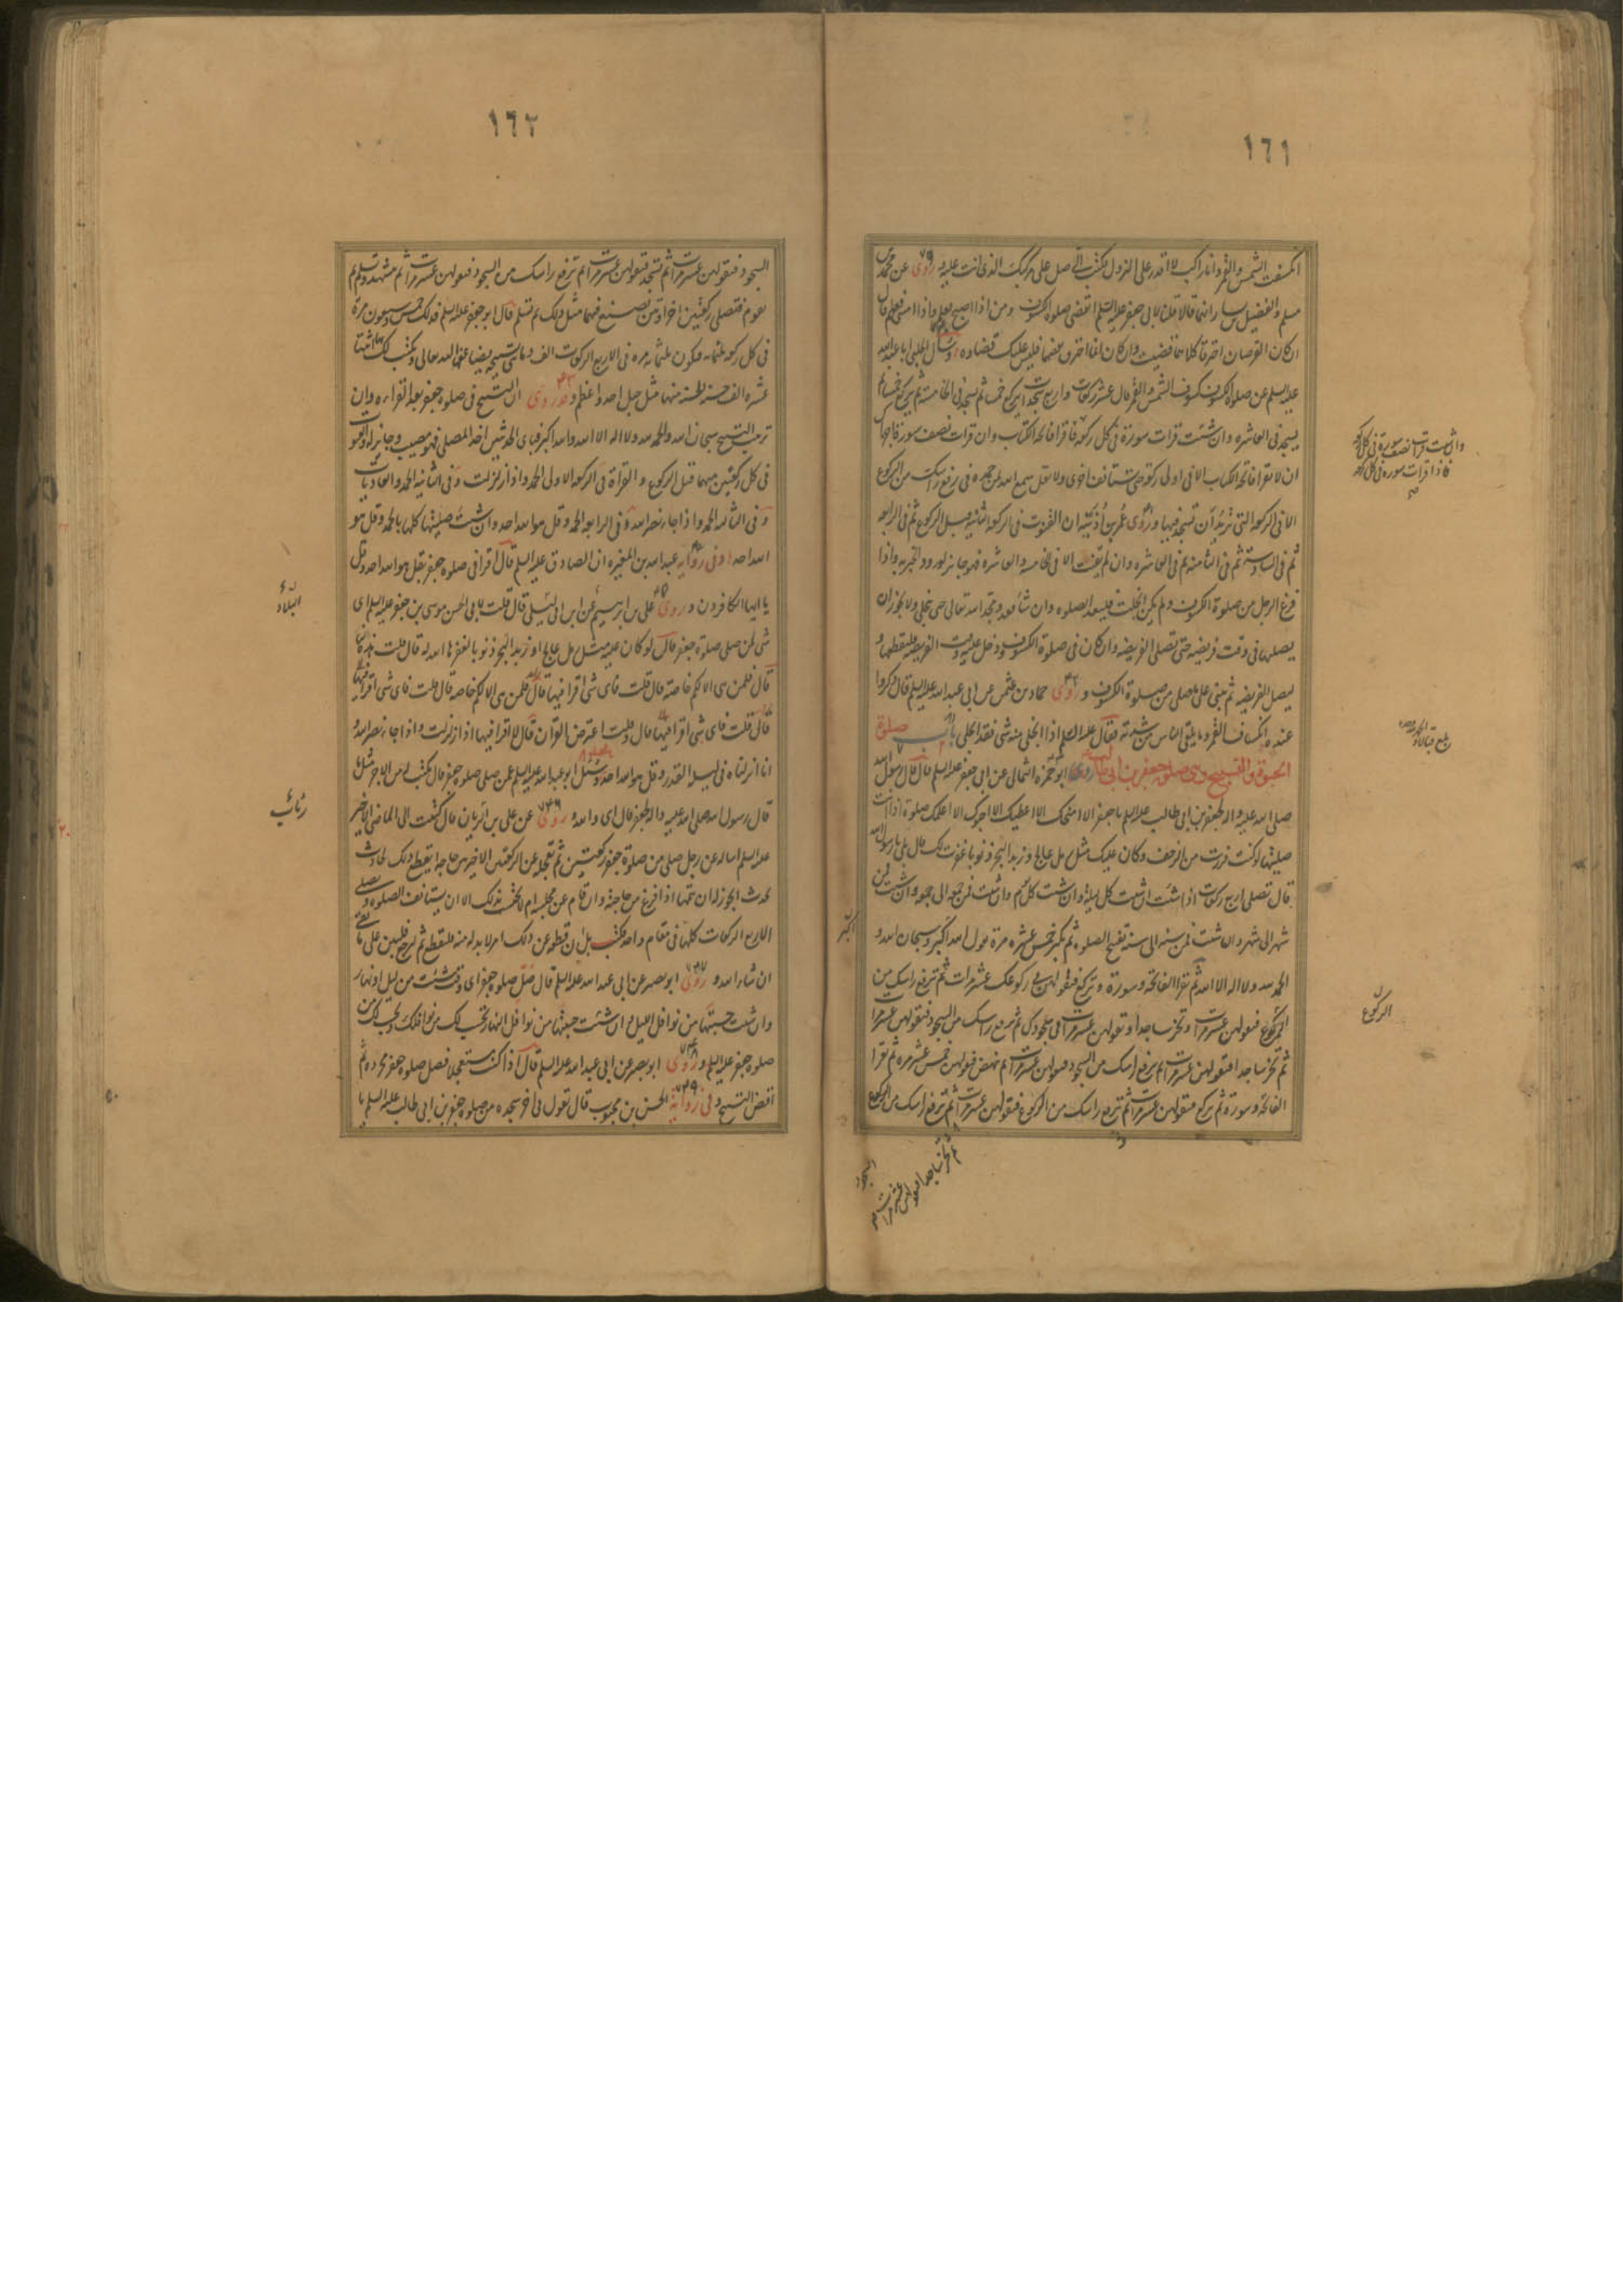 ١٦١
انكسفت الشمس والقمر وانا راكب لا اقدر على النزول فكتب الى صل على مركبك الذى انت عليه و روى عن محمد بن
مسلم والفضيل بن يسار انهما قالا قلنا لابى جعفر عليه السلم اتقضى صلوة الكسوف ومن اذا اصبح فعلم واذا امسى فعلم قال
ان كان القرصان احترقا كلاهما قضيت وان كان انما احترق بعضهما فليس عليك قضاده وسال الحلبى ابا عبد الله
عليه السلم عن صلوة الكسوف كسوف الشمس والقمر قال عشر ركعات واربع سجدات يركع خمسا ثم يسجد فى الخامسة ثم يركع خمسا ثم
يسجد فى العاشره وان شئت قرات سورة فى كل ركعة فاقرا فاتحة الكتاب وان قرات نصف سورة فاجزاك
ان لا تقرا فاتحة الكتاب الا فى اول ركعة حتى تستانف اخرى ولا تقل سمع الله لمن حمده فى رفع راسك من الركوع
الا فى الركعة التى تريد ان تسجد فيها و روى عمر بن اذينه ان القنوت فى الركعة الثانية قبل الركوع ثم فى الرابعه
ثم فى السادسة ثم فى الثامنه ثم فى العاشره وان لم يقنت الا فى الخامسه والعاشره فهو جايز لورود الخبر به واذا
فرغ الرجل من صلوة الكسوف ولم يكن انجلت فليعد الصلوه وان شاء قعد ومجد الله تعالى حتى ينجلى ولا يجوز ان
يصليها فى وقت فريضه حتى تصلى الفريضه وان كان فى صلوة الكسوف ودخل عليه وقت الفريضه فليقطعها و
ليصل الفريضه ثم يبنى على ما صلى من صلوة الكسوف و روى حماد بن عثمن عن ابى عبد الله عليه السلم قال ذكروا
عنده انكساف القمر وما يلقى الناس من شدته فقال عليه السلم اذا انجلى منه شى فقد انجلى باب صلوة
الحبوة والتسبيح وهى صلوة جعفر بن ابى طالب روى ابو حمزه الثمالى عن ابى جعفر عليه السلم قال قال رسول الله
صلى الله عليه واله لجعفر بن ابى طالب عليه السلم يا جعفر الا امنحك الا اعطيك الا احبوك الا اعلمك صلوة اذا انت
صليتها لو كنت فررت من الزحف وكان عليك مثل رمل عالج وزبد البحر ذنوبا غفرت لك قال بلى يا رسول الله
قال تصلى اربع ركعات اذا شئت ان شئت كل ليلة وان شئت كل يوم وان شئت فمن جمعه الى جمعه وان شئت فمن
شهر الى شهر وان شئت فمن سنه الى سنه تفتتح الصلوه ثم تكبر خمس عشره مرة تقول الله اكبر وسبحان الله و
الحمد لله ولا اله الا الله ثم تقرا الفاتحه وسورة وتركع فتقولهن فى ركوعك عشر مرات ثم ترفع راسك من
الركوع فتقولهن عشر مرات وتخر ساجدا وتقولهن عشر مرات فى سجودك ثم ترفع راسك من السجود فتقولهن عشر مرات
ثم تخر ساجدا فتقولهن عشر مرات ثم ترفع راسك من السجود فتقولهن عشر مرات ثم تنهض فتقولهن خمس عشره مره ثم تقرا
الفاتحه وسورة ثم تركع فتقولهن عشر مرات ثم ترفع راسك من الركوع فتقولهن عشر مرات ثم ترفع راسك من الركوع
ثم تخر ساجدا فتقولهن عشر مرات
السجود
وان شئت قرات نصف سورة فى كل ركعة
فاذا قرات سورة فى كل ركعة
اكبر
الركوع
١٦٢
السجود فتقولهن عشر مرات ثم تسجد فتقولهن عشر مرات ثم ترفع راسك من السجود فتقولهن عشر مرات ثم تتشهد وتسلم ثم
تقوم فتصلى ركعتين اخراوتين تصنع فيهما مثل ذلك ثم تسلم قال ابو جعفر عليه السلم فذلك خمس وسبعون مرة
فى كل ركعة ثلثمايه فيكون ثلثمايه مره فى الاربع الركعات الف ومايتى تسبيحه يضاعفها الله تعالى ويكتب لك بها اثنتا
عشره الف حسنه الحسنه منها مثل جبل احد واعظم وقد روى ان التسبيح فى صلوة جعفر بعد القراءه وان
ترتيب التسبيح سبحان الله والحمد لله ولا اله الا الله والله اكبر فباى الحديثين اخذ المصلى فهو مصيب وجايز له والقنوت
فى كل ركعتين منهما قبل الركوع والقراة فى الركعة الاولى الحمد واذا زلزلت وفى الثانيه الحمد والعاديات
وفى الثالثه الحمد واذا جاء نصر الله وفى الرابعه الحمد وقل هو الله احد وان شئت صليتها كلها بالحمد وقل هو
الله احد وفى روايه عبد الله بن المغيره ان الصادق عليه السلم قال اقرا فى صلوة جعفر بقل هو الله احد وقل
يا ايها الكافرون و روى على بن ابرهيم عن ابن ابى ليلى قال قلت لابى الحسن موسى بن جعفر عليه السلم اى
شى لمن صلى صلوة جعفر قال لو كان عليه مثل رمل عالج او زبد البحر ذنوبا لغفرها الله له قال قلت هذه لنا
قال فلمن هى الا لكم خاصه قال قلت فاى شى اقرا فيها
قال قلت فاى شى اقرا فيها قال وقلت اعترض القرآن قال لا اقرا فيها اذا زلزلت واذا جاء نصر الله و
انا انزلناه فى ليلة القدر وقل هو الله احد وسئل ابو عبد الله عليه السلم عمن صلى صلوة جعفر هل يكتب له من الاجر مثل ما
قال رسول الله صلى الله عليه واله لجعفر قال اى والله و روى عن على بن الريان قال كتبت الى الماضى الاخير
عليه السلم اساله عن رجل صلى من صلوة جعفر ركعتين ثم تعجله عن الركعتين الاخيرتين حاجه ايقطع ذلك لحادث
يحدث ايجوز له ان يتمها اذا فرغ من حاجته وان قام عن مجلسه ام لا يحتسب بذلك الا ان يستانف الصلوة ويصلى
الاربع الركعات كلها فى مقام واحد فكتب بلى ان قطعه عن ذلك امر لا بد له منه فليقطع ثم ليرجع فليبن على ما بقى
ان شاء الله و روى ابو بصير عن ابى عبد الله عليه السلم قال صل صلوة جعفر اى وقت شئت من ليل او نهار
وان شئت حسبتها من نوافل الليل وان شئت حسبتها من نوافل النهار تحسب لك من نوافلك وتحسب لك من
صلوة جعفر عليه السلم و روى ابو بصير عن ابى عبد الله عليه السلم قال اذا كنت مستعجلا فصل صلوة جعفر مجرده ثم
اقض التسبيح وفى رواية الحسن بن محبوب قال تقول فى اخر سجده من صلوة جعفر بن ابى طالب عليه السلم يا
البلاد